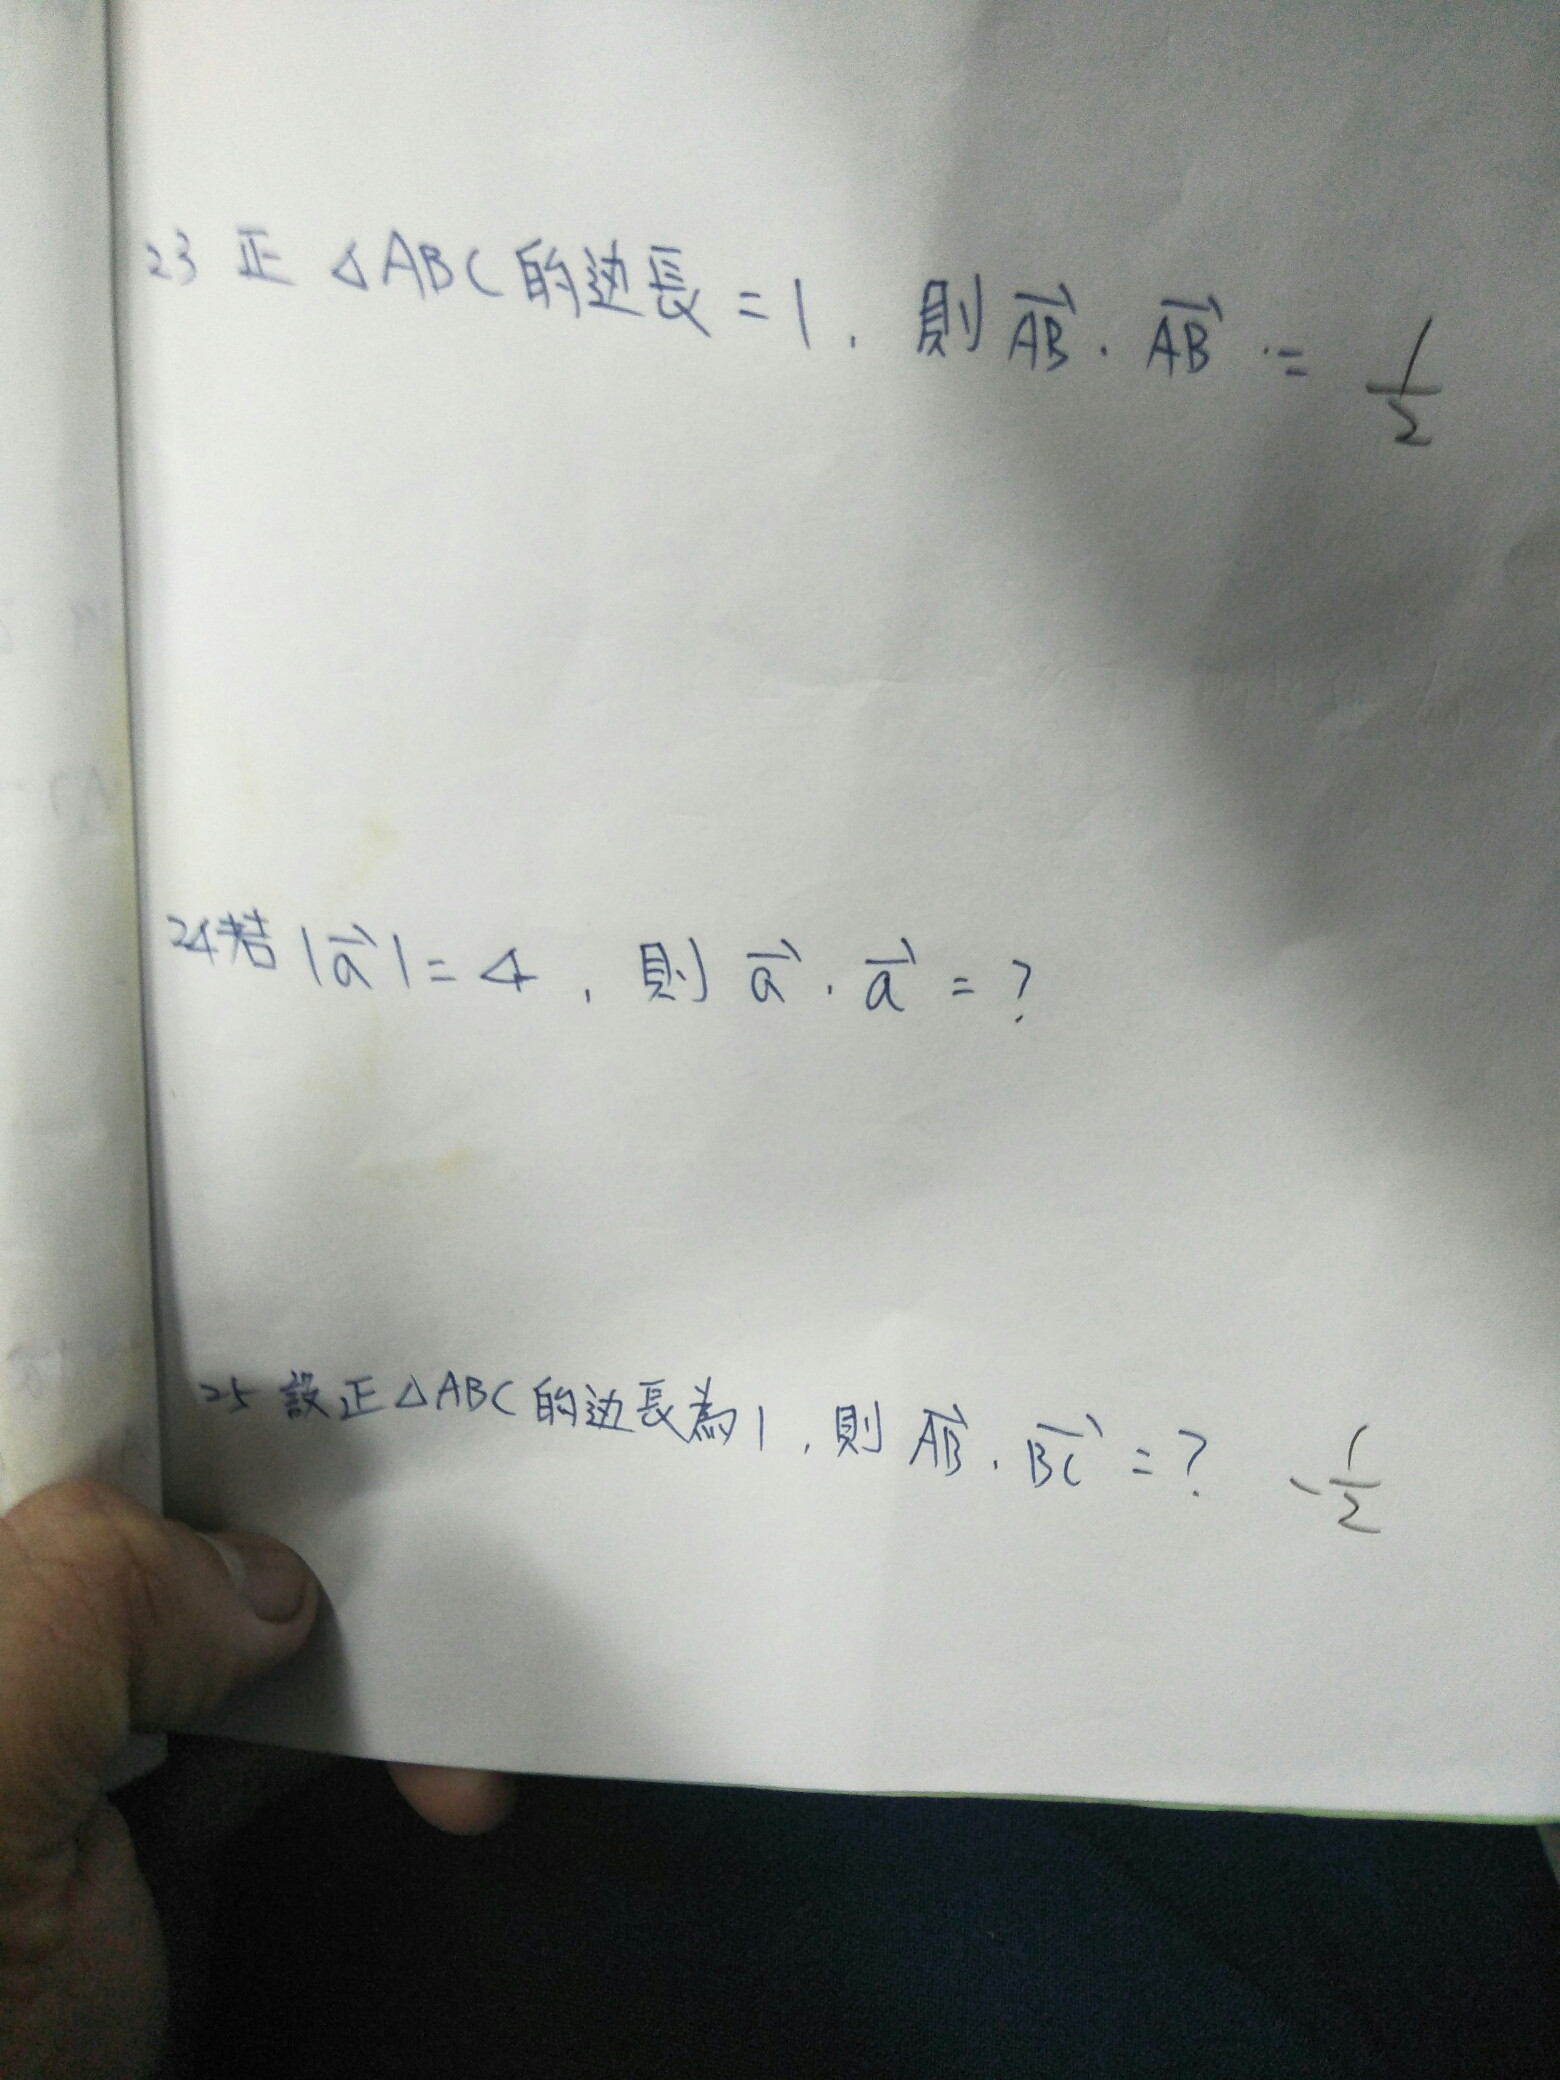 23 正△ABC的边長=1，則 $\overrightarrow{AB}$ · $\overrightarrow{AB}$ = $\frac{1}{2}$
24 若 |$\overrightarrow{a}$| = 4，則 $\overrightarrow{a}$ · $\overrightarrow{a}$ = ?
25 設正△ABC的边長為1，則 $\overrightarrow{AB}$ · $\overrightarrow{BC}$ = ? $-\frac{1}{2}$